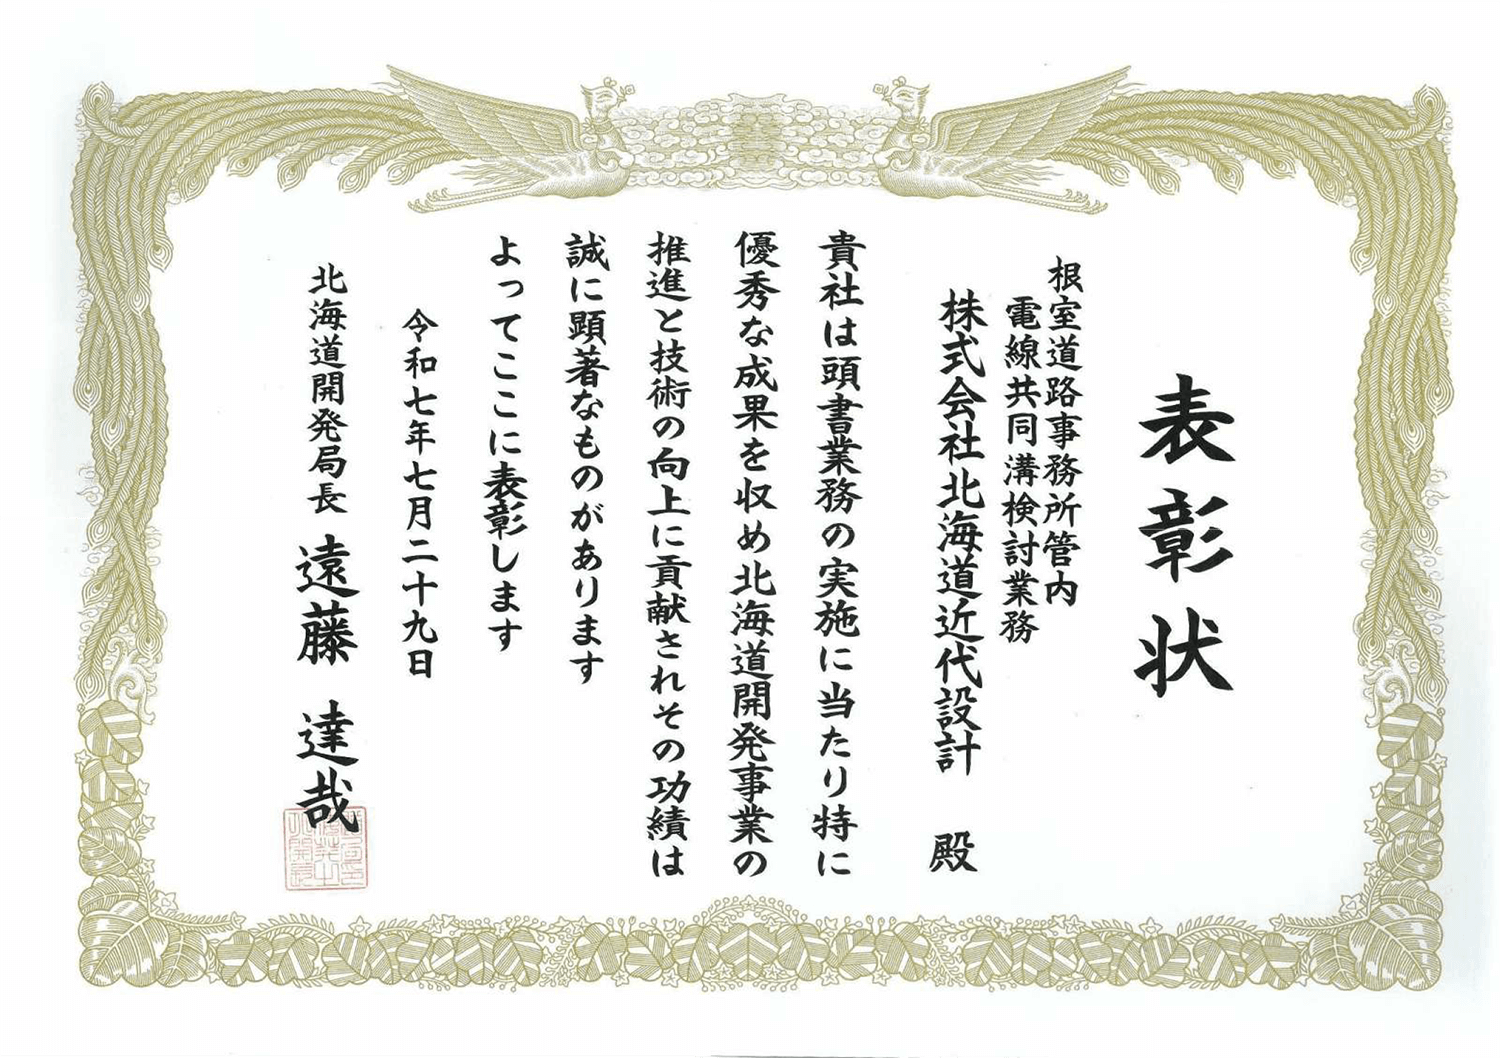 表彰状
根室道路事務所管内
電線共同溝検討業務
株式会社北海道近代設計 殿
貴社は頭書業務の実施に当たり特に
優秀な成果を収め北海道開発事業の
推進と技術の向上に貢献されその功績は
誠に顕著なものがあります
よってここに表彰します
令和七年七月二十九日
北海道開発局長 遠藤 達哉